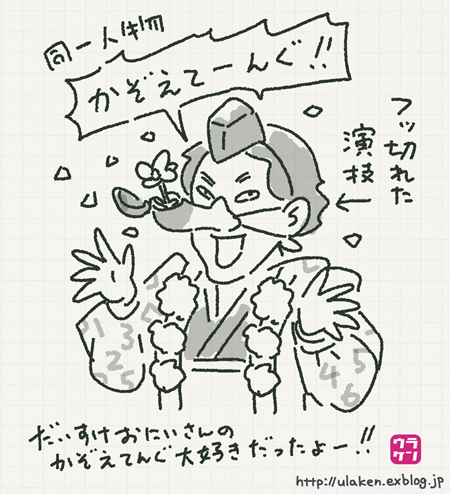 同一人物
かぞえてーんぐ!!
フッ切れた
演技
1
3
2
5
5
4
6
だいすけおにいさんの
かぞえてんぐ大好きだったよー!!
ウラケン
http://ulaken.exblog.jp